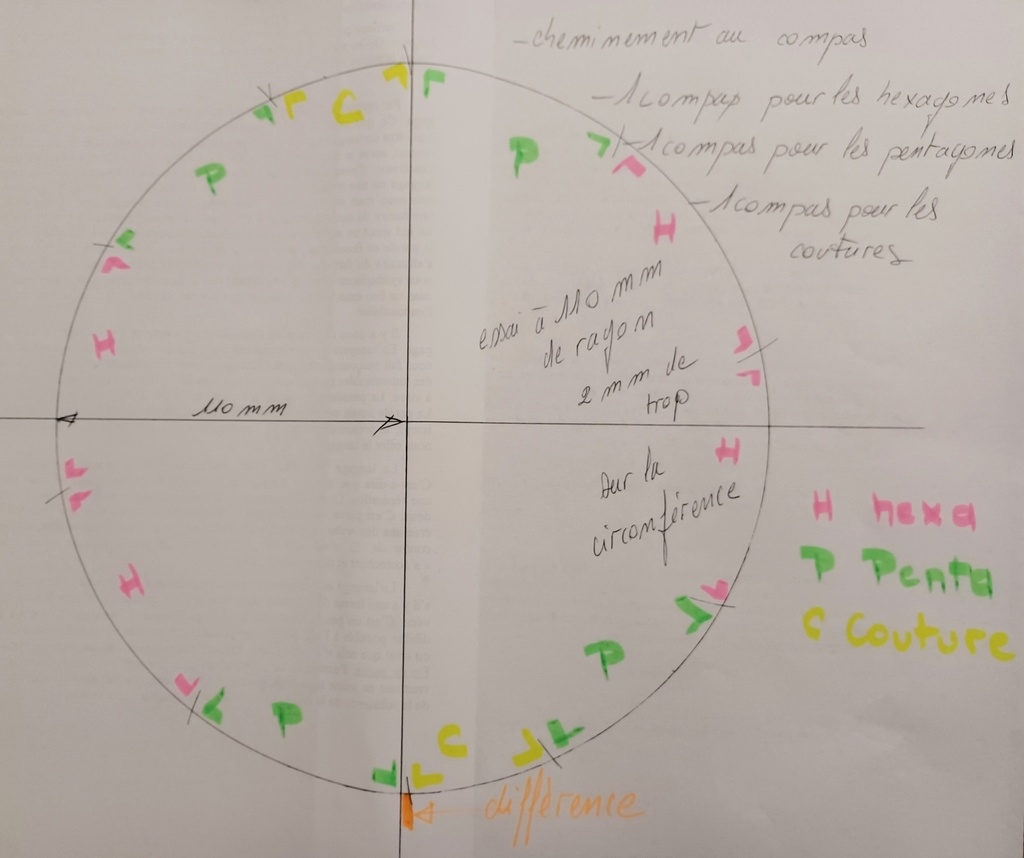 -cheminement au compas
-1 compas pour les hexagones
-1 compas pour les pentagones
-1 compas pour les
coutures
C
P
P
H
essai à 110 mm
de rayon
2 mm de
trop
H
110 mm
H
sur la
circonférence
H
P
P
C
H hexa
P Penta
C Couture
différence